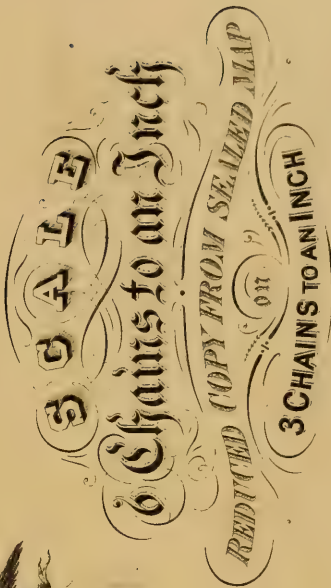 SCALE
6 Chains to an Inch
REDUCED COPY FROM SEALED MAP
on
3 CHAINS TO AN INCH